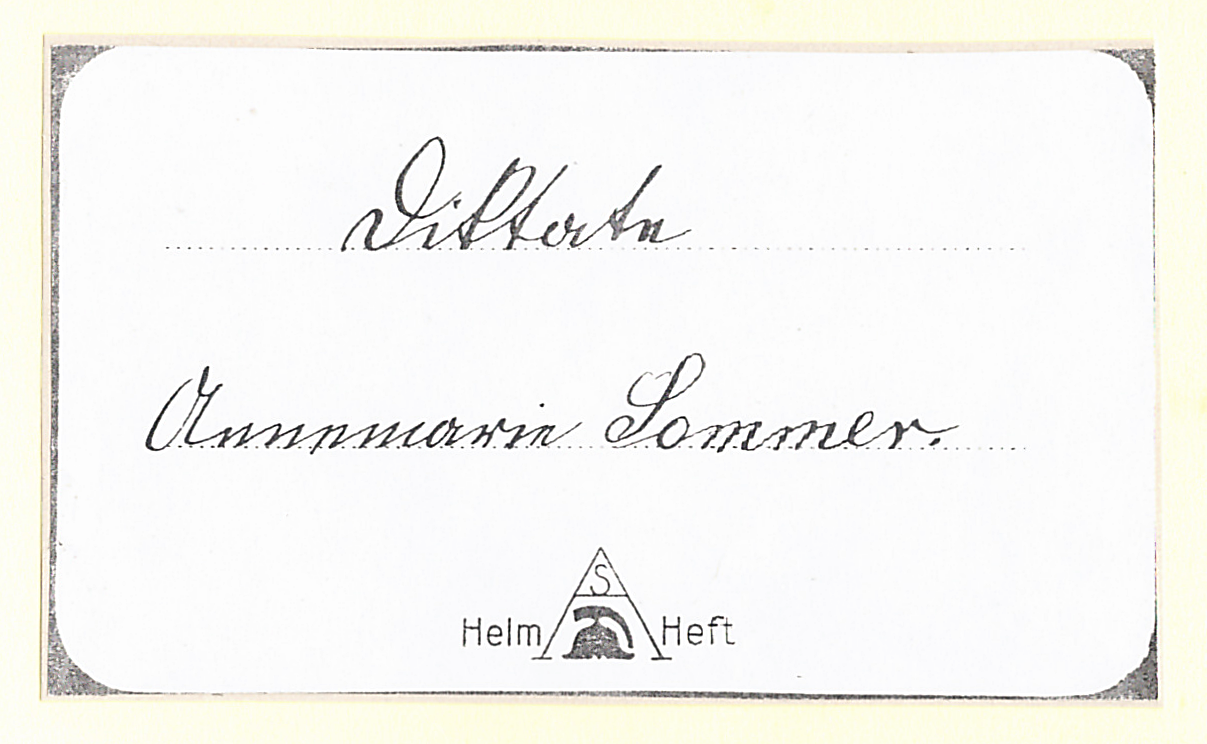 Diktate
Annemarie Sommer.
S
Helm Heft